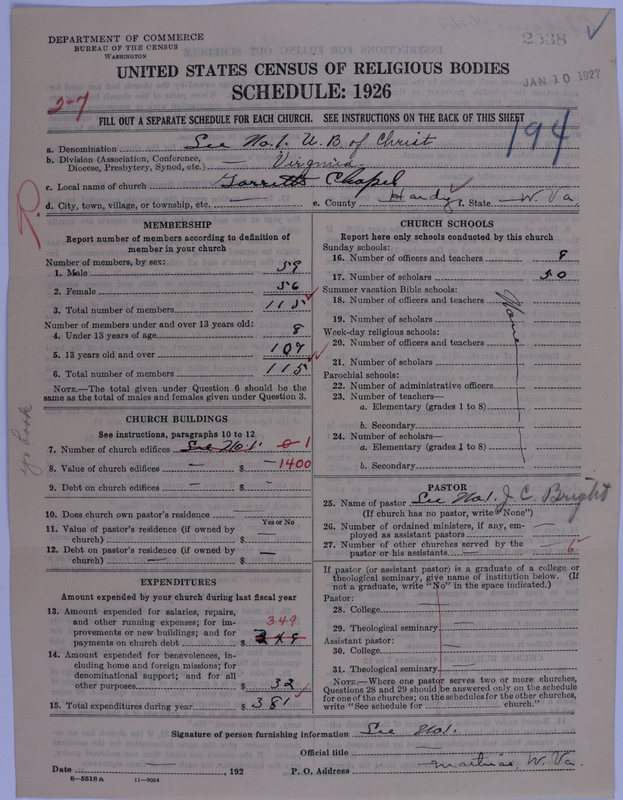 DEPARTMENT OF COMMERCE
BUREAU OF THE CENSUS
WASHINGTON
2538
UNITED STATES CENSUS OF RELIGIOUS BODIES
JAN 10 1927
SCHEDULE: 1926
2-7
FILL OUT A SEPARATE SCHEDULE FOR EACH CHURCH. SEE INSTRUCTIONS ON THE BACK OF THIS SHEET
194
a. Denomination See No. 1. U.B. of Christ
b. Division (Association, Conference, Diocese, Presbytery, Synod, etc.) — Virginia
c. Local name of church Garretts Chapel
d. City, town, village, or township, etc. — e. County Hardy, State W. Va
MEMBERSHIP
Report number of members according to definition of
member in your church
Number of members, by sex:
1. Male 59
2. Female 56
3. Total number of members 115
Number of members under and over 13 years old:
4. Under 13 years of age 8
5. 13 years old and over 107
6. Total number of members 115
NOTE.—The total given under Question 6 should be the
same as the total of males and females given under Question 3.
CHURCH BUILDINGS
See instructions, paragraphs 10 to 12
7. Number of church edifices See No. 1. 0 1
8. Value of church edifices — $ 1400
9. Debt on church edifices — $ -
10. Does church own pastor's residence —
Yes or No
11. Value of pastor's residence (if owned by
church) $ —
12. Debt on pastor's residence (if owned by
church) — $ —
EXPENDITURES
Amount expended by your church during last fiscal year
13. Amount expended for salaries, repairs,
and other running expenses; for im-
provements or new buildings; and for
payments on church debt $ 349
14. Amount expended for benevolences, in-
cluding home and foreign missions; for
denominational support; and for all
other purposes $ 32
15. Total expenditures during year $ 381
CHURCH SCHOOLS
Report here only schools conducted by this church
Sunday schools:
16. Number of officers and teachers 9
17. Number of scholars 50
Summer vacation Bible schools:
18. Number of officers and teachers
None
19. Number of scholars
Week-day religious schools:
20. Number of officers and teachers
21. Number of scholars
Parochial schools:
22. Number of administrative officers
23. Number of teachers—
a. Elementary (grades 1 to 8)
b. Secondary
24. Number of scholars—
a. Elementary (grades 1 to 8)
b. Secondary
PASTOR
25. Name of pastor See No. 1. J. C. Bright
(If church has no pastor, write "None")
26. Number of ordained ministers, if any, em-
ployed as assistant pastors —
27. Number of other churches served by the
pastor or his assistants — 6
If pastor (or assistant pastor) is a graduate of a college or
theological seminary, give name of institution below. (If
not a graduate, write "No" in the space indicated.)
Pastor:
28. College —
29. Theological seminary —
Assistant pastor:
30. College —
31. Theological seminary —
NOTE.—Where one pastor serves two or more churches,
Questions 28 and 29 should be answered only on the schedule
for one of the churches; on the schedules for the other churches,
write "See schedule for church."
Signature of person furnishing information See No. 1.
Official title —
Date —, 192 P. O. Address Mathias, W. Va.
8—5518a 11—9024